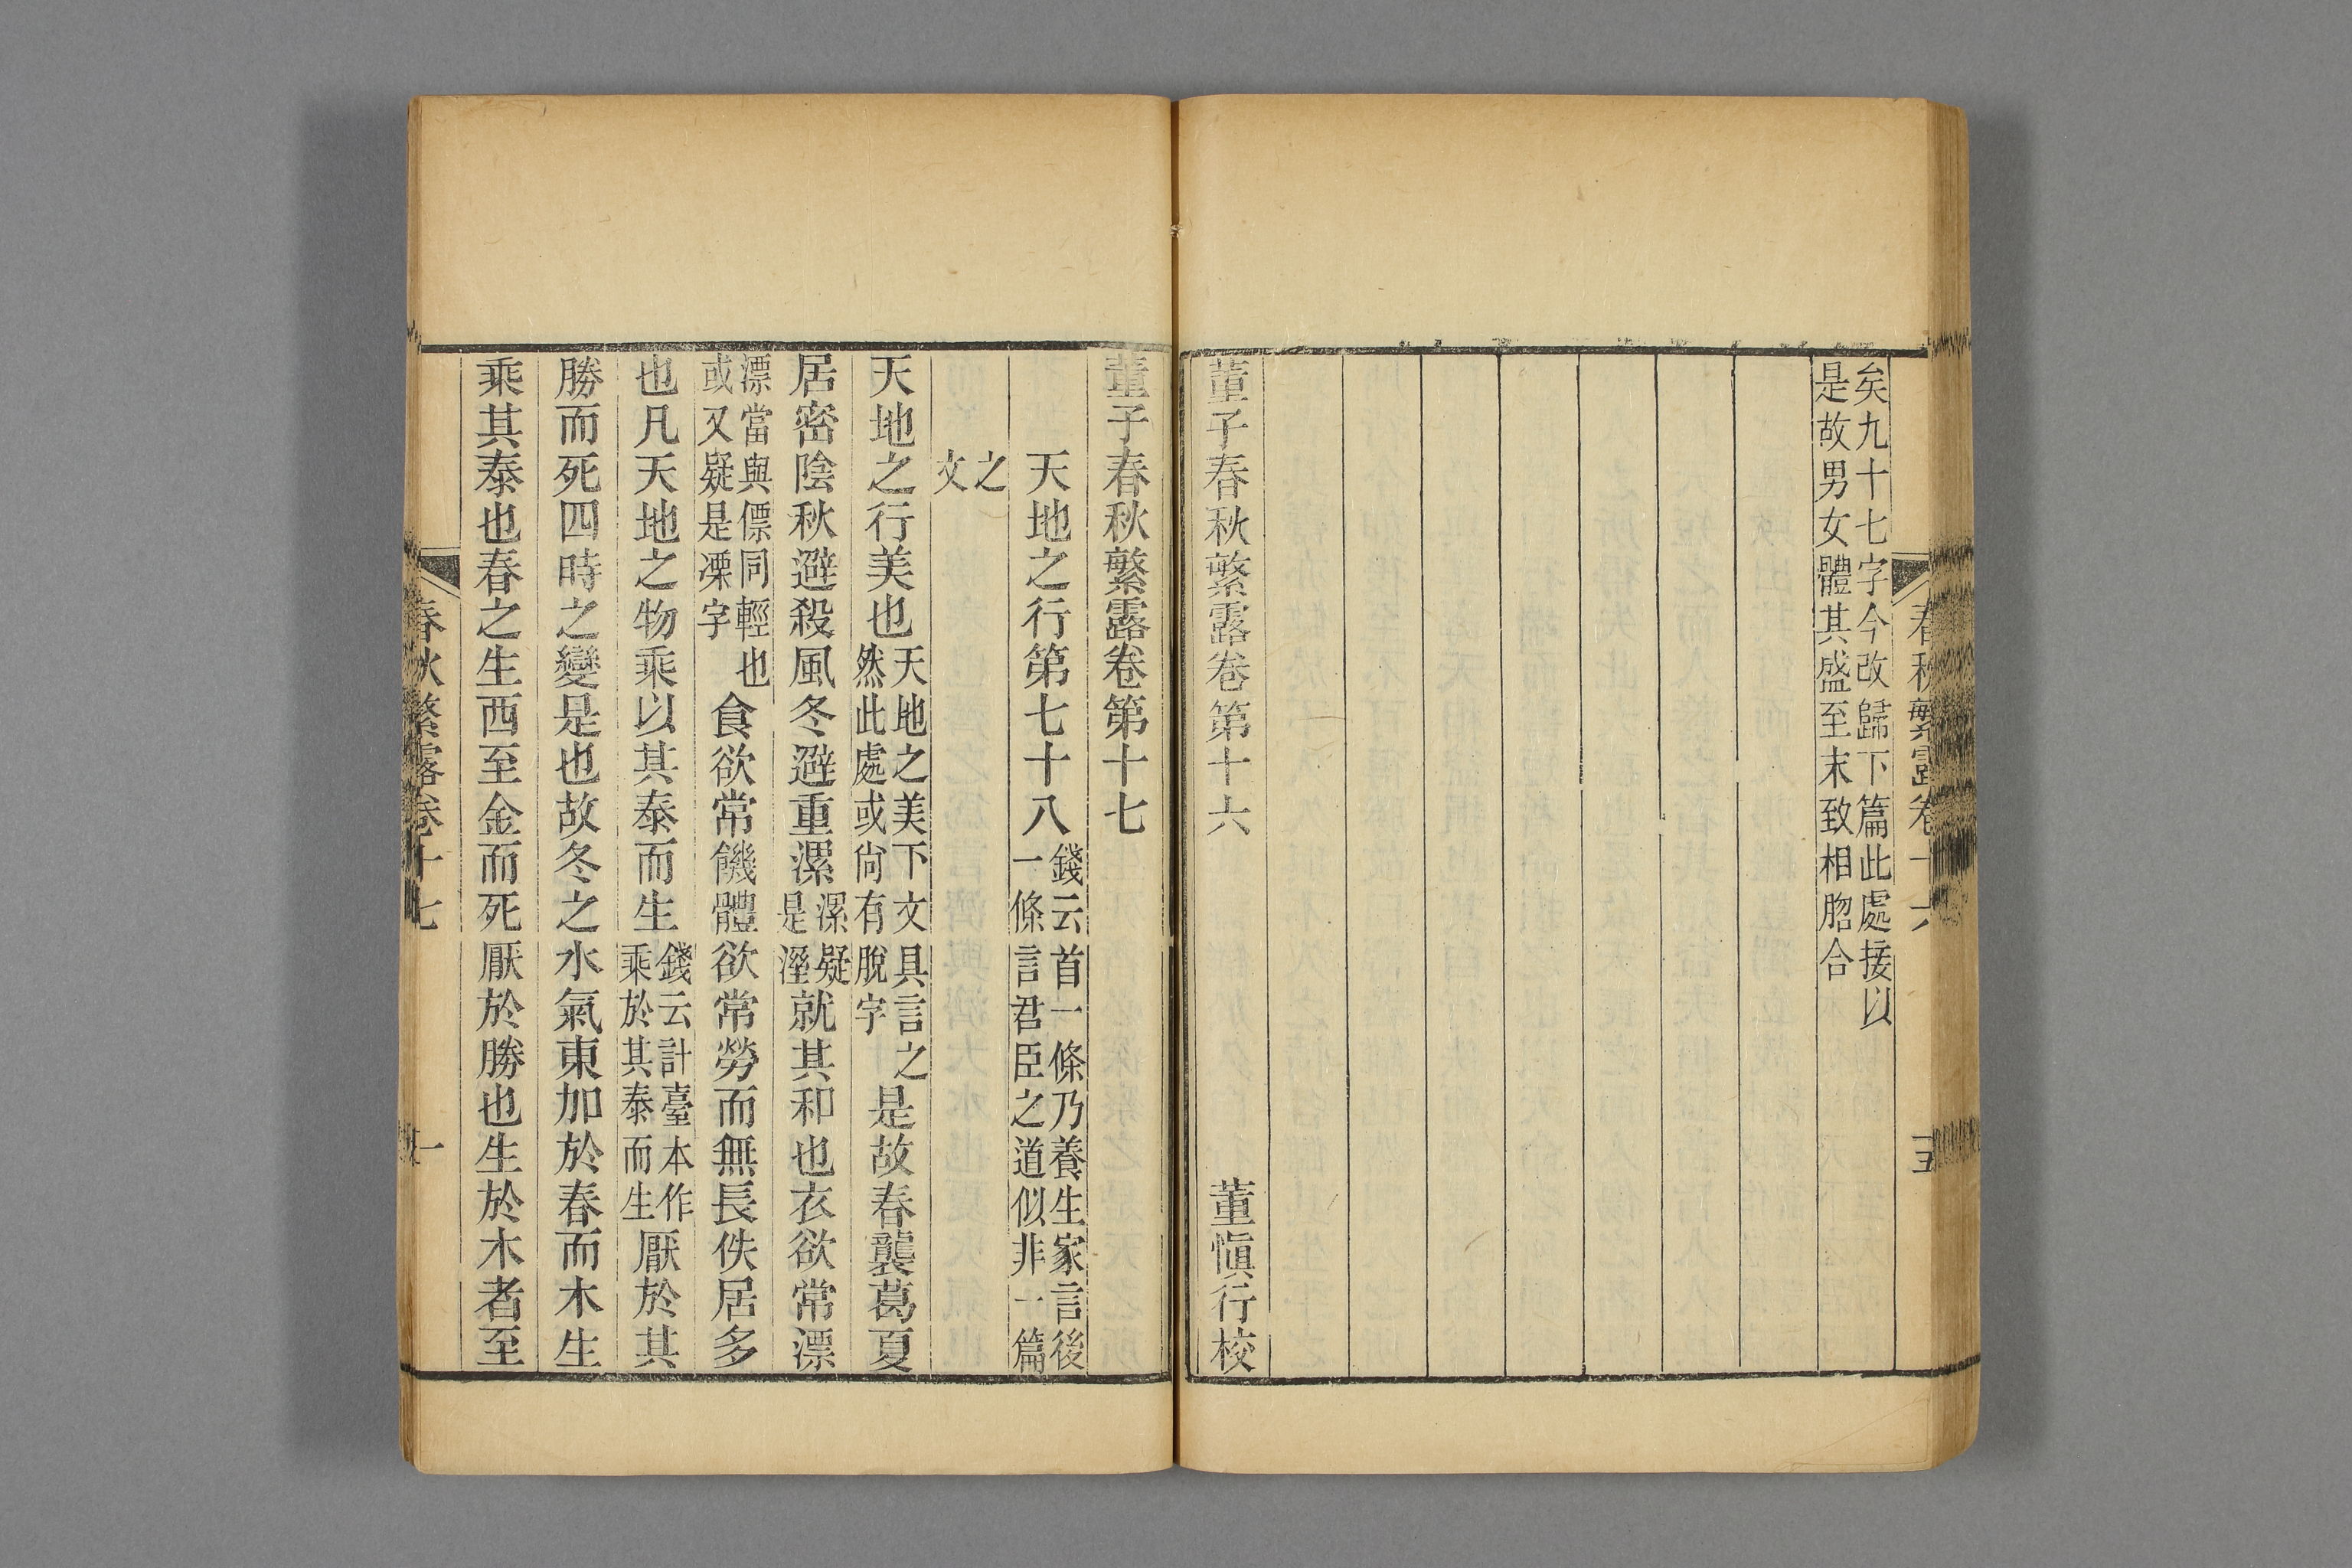 春秋繁露卷十六
矣九十七字今改歸下篇此處接以
是故男女體其盛至末致相䏚合
董子春秋繁露卷第十六 董愼行校
董子春秋繁露卷第十七
天地之行第七十八 錢云首一條乃養生家言後
一條言君臣之道似非一篇
之
文
天地之行美也 天地之美下文具言之
然此處或尙有脫字 是故春襲葛夏
居密陰秋避殺風冬避重漯 漯疑
是溼 就其和也衣欲常漂
漂當與僄同輕也
或又疑是凓字 食欲常饑體欲常勞而無長佚居多
也凡天地之物乘以其泰而生 錢云計臺本作
乘於其泰而生 厭於其
勝而死四時之變是也故冬之水氣東加於春而木生
乘其泰也春之生西至金而死厭於勝也生於木者至
春秋繁露卷十七 一